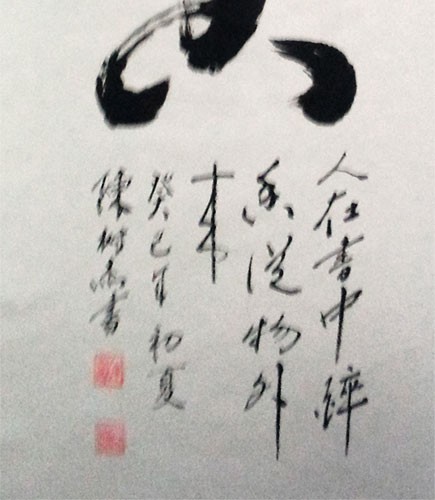 人在書中醉
香從物外
来
癸巳年初夏
陳樹書